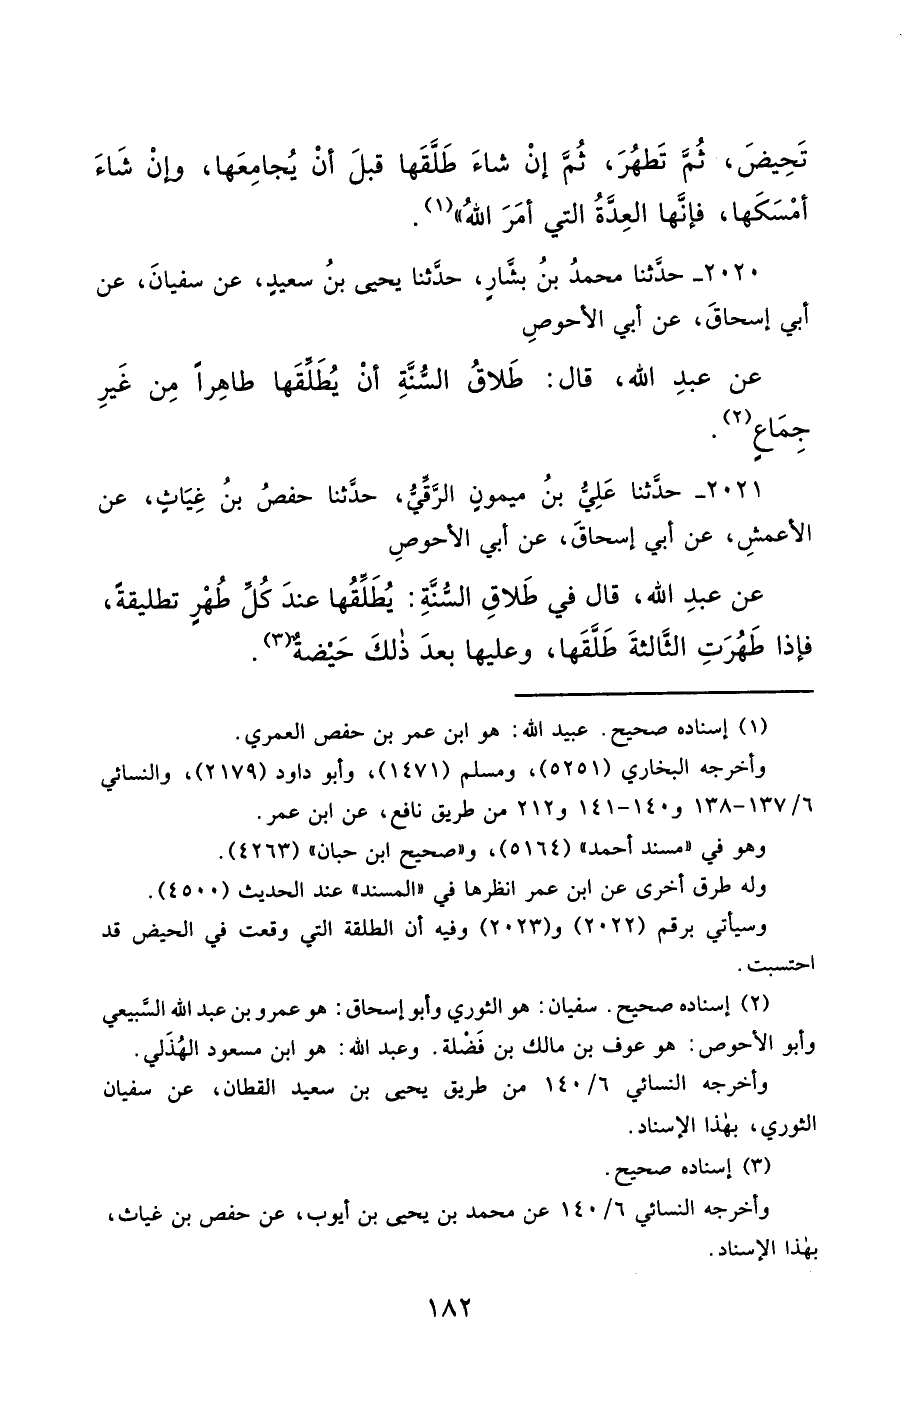 تَحِيضَ، ثُمَّ تَطهُرَ، ثُمَّ إنْ شاءَ طَلَّقَها قبلَ أنْ يُجامِعَها، وإنْ شَاءَ
أمْسَكَها، فإنَّها العِدَّةُ التي أمَرَ اللهُ»(١).
٢٠٢٠ـ حدَّثنا محمدُ بنُ بشَّارٍ، حدَّثنا يحيى بنُ سعيدٍ، عن سفيانَ، عن
أبي إسحاقَ، عن أبي الأحوصِ
عن عبدِ الله، قال: طَلاقُ السُّنَّةِ أنْ يُطَلِّقَها طاهِراً مِن غَيرِ
جِمَاعٍ(٢).
٢٠٢١ـ حدَّثنا عَلِيُّ بنُ ميمونٍ الرَّقِّيُّ، حدَّثنا حفصُ بنُ غِيَاثٍ، عن
الأعمشِ، عن أبي إسحاقَ، عن أبي الأحوصِ
عن عبدِ الله، قال في طَلاقِ السُّنَّةِ: يُطَلِّقُها عندَ كُلِّ طُهْرٍ تطليقةً،
فإذا طَهُرَتِ الثَّالثةَ طَلَّقَها، وعليها بعدَ ذٰلكَ حَيْضةٌ(٣).
(١) إسناده صحيح. عبيد الله: هو ابن عمر بن حفص العمري.
وأخرجه البخاري (٥٢٥١)، ومسلم (١٤٧١)، وأبو داود (٢١٧٩)، والنسائي
٦/ ١٣٧-١٣٨ و١٤٠-١٤١ و٢١٢ من طريق نافع، عن ابن عمر.
وهو في «مسند أحمد» (٥١٦٤)، و«صحيح ابن حبان» (٤٢٦٣).
وله طرق أخرى عن ابن عمر انظرها في «المسند» عند الحديث (٤٥٠٠).
وسيأتي برقم (٢٠٢٢) و(٢٠٢٣) وفيه أن الطلقة التي وقعت في الحيض قد
احتسبت.
(٢) إسناده صحيح. سفيان: هو الثوري وأبو إسحاق: هو عمرو بن عبد الله السَّبيعي
وأبو الأحوص: هو عوف بن مالك بن فَضْلة. وعبد الله: هو ابن مسعود الهُذَلي.
وأخرجه النسائي ٦/ ١٤٠ من طريق يحيى بن سعيد القطان، عن سفيان
الثوري، بهٰذا الإسناد.
(٣) إسناده صحيح.
وأخرجه النسائي ٦/ ١٤٠ عن محمد بن يحيى بن أيوب، عن حفص بن غياث،
بهٰذا الإسناد.
١٨٢